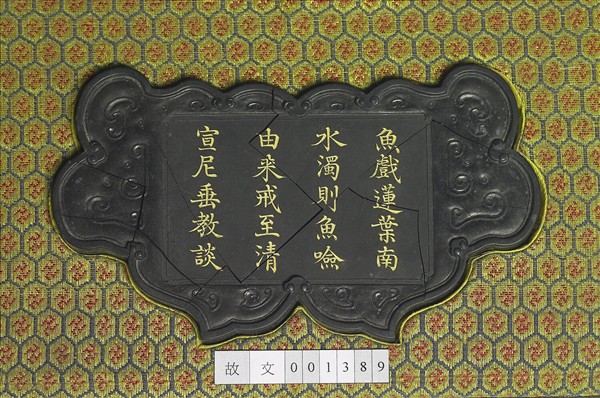 魚戲蓮葉南
水濁則魚噞
由来戒至清
宣尼垂教談
故文001389